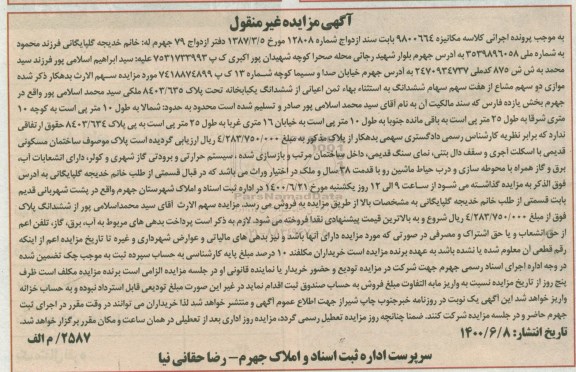 آگهی مزایده غیر منقول
به موجب پرونده اجرائی کلاسه مکانیزه ۹۸۰۰۶۶۴ بابت سند ازدواج شماره ۱۲۸۰۸ مورخ ۱۳۸۷/۳/۵ دفتر ازدواج ۷۹ جهرم له: خانم خدیجه گلپایگانی فرزند محمود
به شماره ملی ۳۵۳۹۸۹۶۰۵۸ به ادرس جهرم بلوار شهید رجائی محله صحرا کوچه شهیدان پور اکبری ک پ ۷۵۳۱۷۳۳۹۹۳ علیه: سید ابراهیم اسلامی پور فرزند سید
محمد به ش ش ۸۷۵ کدملی ۲۴۷۰۹۳۴۷۳۷ به ادرس جهرم خیابان صدا و سیما کوچه شماره ۱۳ ک پ ۷۴۱۸۸۷۴۸۹۹ مورد مزایده سهم الارث بدهکار ذکر شده
موازی دو سهم مشاع از هفت سهم سهام ششدانگ به استثناء بهاء ثمن اعیانی از ششدانگ یکبابخانه تحت پلاک ۸۴۰۳/۶۳۵ ملکی سید محمد اسلامی پور واقع در
جهرم بخش یازده فارس که سند مالکیت آن به نام آقای سید محمد اسلامی پور صادر و تسلیم شده است محدود به حدود: شمالا به طول ۱۰ متر پی است به کوچه ۱۰
متری شرقا به طول ۲۵ متر پی است به باقی مانده جنوبا به طول ۱۰ متر پی است به خیابان ۱۶ متری غربا به طول ۲۵ متر پی است به پی پلاک ۸۴۰۳/۶۳۴ حقوق ارتفاقی
ندارد که برابر نظریه کارشناس رسمی دادگستری سهمی بدهکار از پلاک مذکور به مبلغ ۴/۲۸۳/۷۵۰/۰۰۰ ریال ارزیابی گردیده است پلاک موصوف ساختمان مسکونی
قدیمی با اسکلت آجری و سقف دال بتنی، نمای سنگ قدیمی، داخل ساختمان مرتب و بازسازی شده ، سیستم حرارتی و برودتی گاز شهری و کولر، دارای انشعابات آب،
برق و گاز همراه با محوطه سازی و درب حیاط ماشین رو با قدمت ۳۸ سال و ملک در اختیار وراث می باشد که در قبال قسمتی از طلب خانم خدیجه گلپایگانی به آدرس
فوق الذکر به مزایده گذاشته می شود از ساعت ۹ الی ۱۲ روز یکشنبه مورخ ۱۴۰۰/۶/۲۱ در اداره ثبت اسناد و املاک شهرستان جهرم واقع در پشت شهربانی قدیم
بابت قسمتی از طلب خانم خدیجه گلپایگانی به مشخصات بالا از طریق مزایده به فروش می رسد. مزایده سهم الارث آقای سید محمداسلامی پور از ششدانگ پلاک
فوق از مبلغ ۴/۲۸۳/۷۵۰/۰۰۰ ریال شروع و به بالاترین قیمت پیشنهادی نقدا فروخته می شود. لازم به ذکر است پرداخت بدهی های مربوط به آب، برق، گاز، تلفن اعم
از حق انشعاب و یا حق اشتراک و مصرفی در صورتی که مورد مزایده دارای آنها باشد و نیز بدهی های مالیاتی و عوارض شهرداری و غیره تا تاریخ مزایده اعم از اینکه
رقم قطعی آن معلوم شده یا نشده باشد به عهده برنده مزایده است خریداران مکلفند ۱۰ درصد مبلغ پایه کارشناسی به حساب سپرده ثبت به موجب چک تضمین شده
در وجه اداره اجرای اسناد رسمی جهرم جهت شرکت در مزایده تودیع و حضور خریدار یا نماینده قانونی او در جلسه مزایده الزامی است برنده مزایده مکلف است ظرف
پنج روز از تاریخ مزایده نسبت به واریز مابه التفاوت مبلغ فروش به حساب صندوق ثبت اقدام نماید در غیر این صورت مبلغ تودیعی قابل استرداد نبوده و به حساب خزانه
واریز خواهد شد. این آگهی یک نوبت در روزنامه خبرجنوب چاپ شیراز جهت اطلاع عموم آگهی و منتشر خواهد شد لذا خریداران می توانند در وقت مقرر در اجرای ثبت
جهرم حاضر و در جلسه مزایده شرکت کنند. ضمنا چنانچه روز مزایده تعطیل رسمی گردد، مزایده روز اداری بعد از تعطیلی در همان ساعت و مکان مقرر برگزار خواهد شد.
تاریخ انتشار: ۱۴۰۰/۶/۸
۲۵۸۷/ م الف
سرپرست اداره ثبت اسناد و املاک جهرم – رضا حقانی نیا